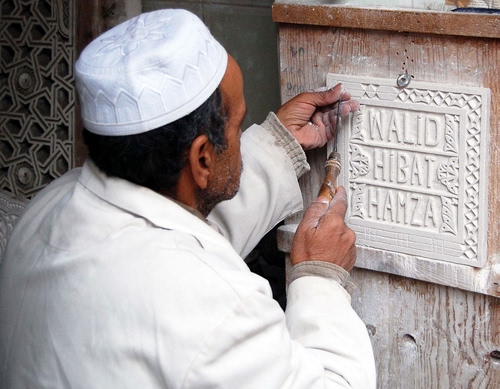 WALID
HIBAT
HAMZA